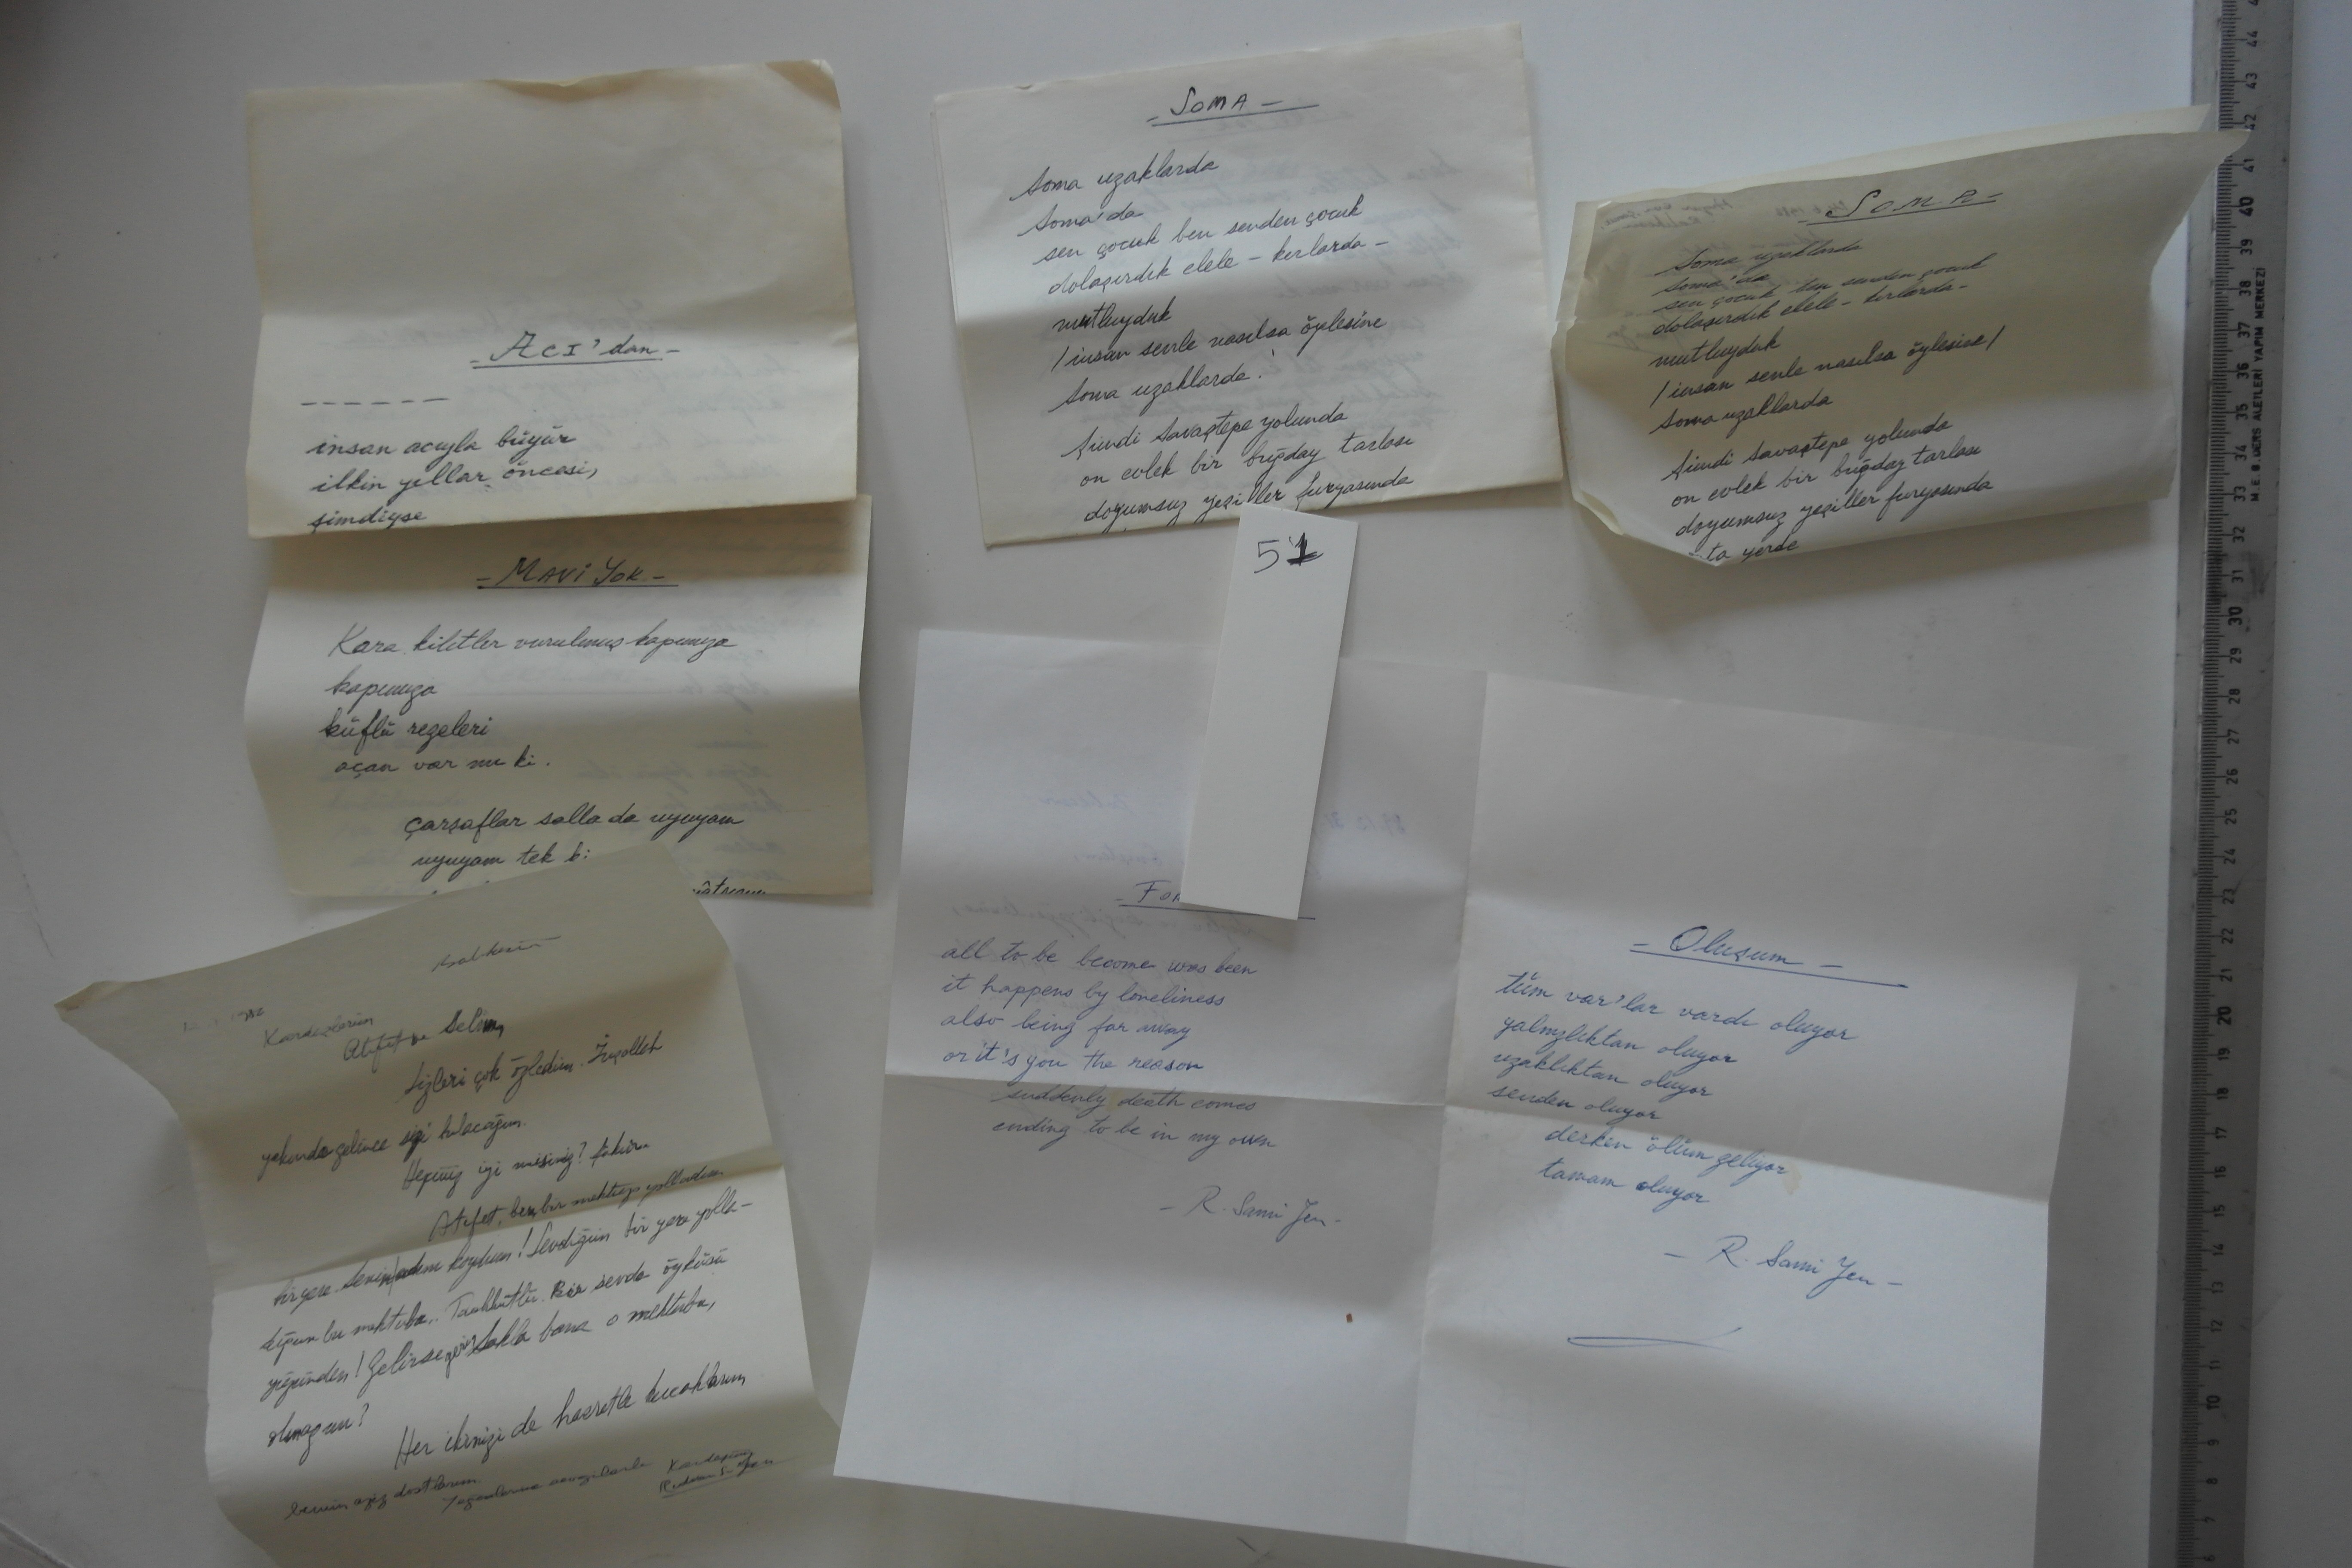 - ACI'dan -
- - - - - -
insan acıyla büyür
ilkin yıllar öncesi,
şimdiyse
- MAVİ YOK -
Kara kilitler vurulmuş kapımıza
kapımıza
küflü rezeleri
açan var mı ki.
çarşaflar salla da uyuyam
uyuyam tek bi
- SOMA -
Soma uzaklarda
Soma'da
sen çocuk ben senden çocuk
dolaşırdık elele - kırlarda -
mutluyduk
/ insan senle nasılsa öylesine
Soma uzaklarda!
Şimdi Savaştepe yolunda
on evlek bir buğday tarlası
doyumsuz yeşiller furyasında
- SOMA -
Soma uzaklarda
Soma'da
sen çocuk ben senden çocuk
dolaşırdık elele - kırlarda -
mutluyduk
/ insan senle nasılsa öylesine /
Soma uzaklarda
Şimdi Savaştepe yolunda
on evlek bir buğday tarlası
doyumsuz yeşiller furyasında
ta yerde
51
Balıkesir
Kardeşlerim
Atıfet ve Selim,
Sizleri çok özledim. İnşallah
yakında gelince sizi bulacağım.
Hepiniz iyi misiniz?
Atıfet, ben bir mektup yolladım
bir yere. Senin adını koydum! Sevdiğim bir yere yolla-
dığım bu mektuba. Taahhütlü. Bir sevda öyküsü
yüzünden! Gelirse geri sakla bana o mektubu,
olmaz mı?
Her ikinizi de hasretle kucaklarım
benim aziz dostlarım.
Kardeşiniz
all to be become was been
it happens by loneliness
also being far away
or it's you the reason
suddenly death comes
ending to be in my own
- R. Sami Yen -
- Oluşum -
tüm var'lar vardı oluyor
yalnızlıktan oluyor
uzaklıktan oluyor
senden oluyor
derken ölüm geliyor
tamam oluyor
- R. Sami Yen -
M.E.B. DERS ALETLERİ YAPIM MERKEZİ
44
43
42
41
40
39
38
37
36
35
34
33
32
31
30
29
28
27
26
25
24
23
22
21
20
19
18
17
16
15
14
13
12
11
10
9
8
7
6